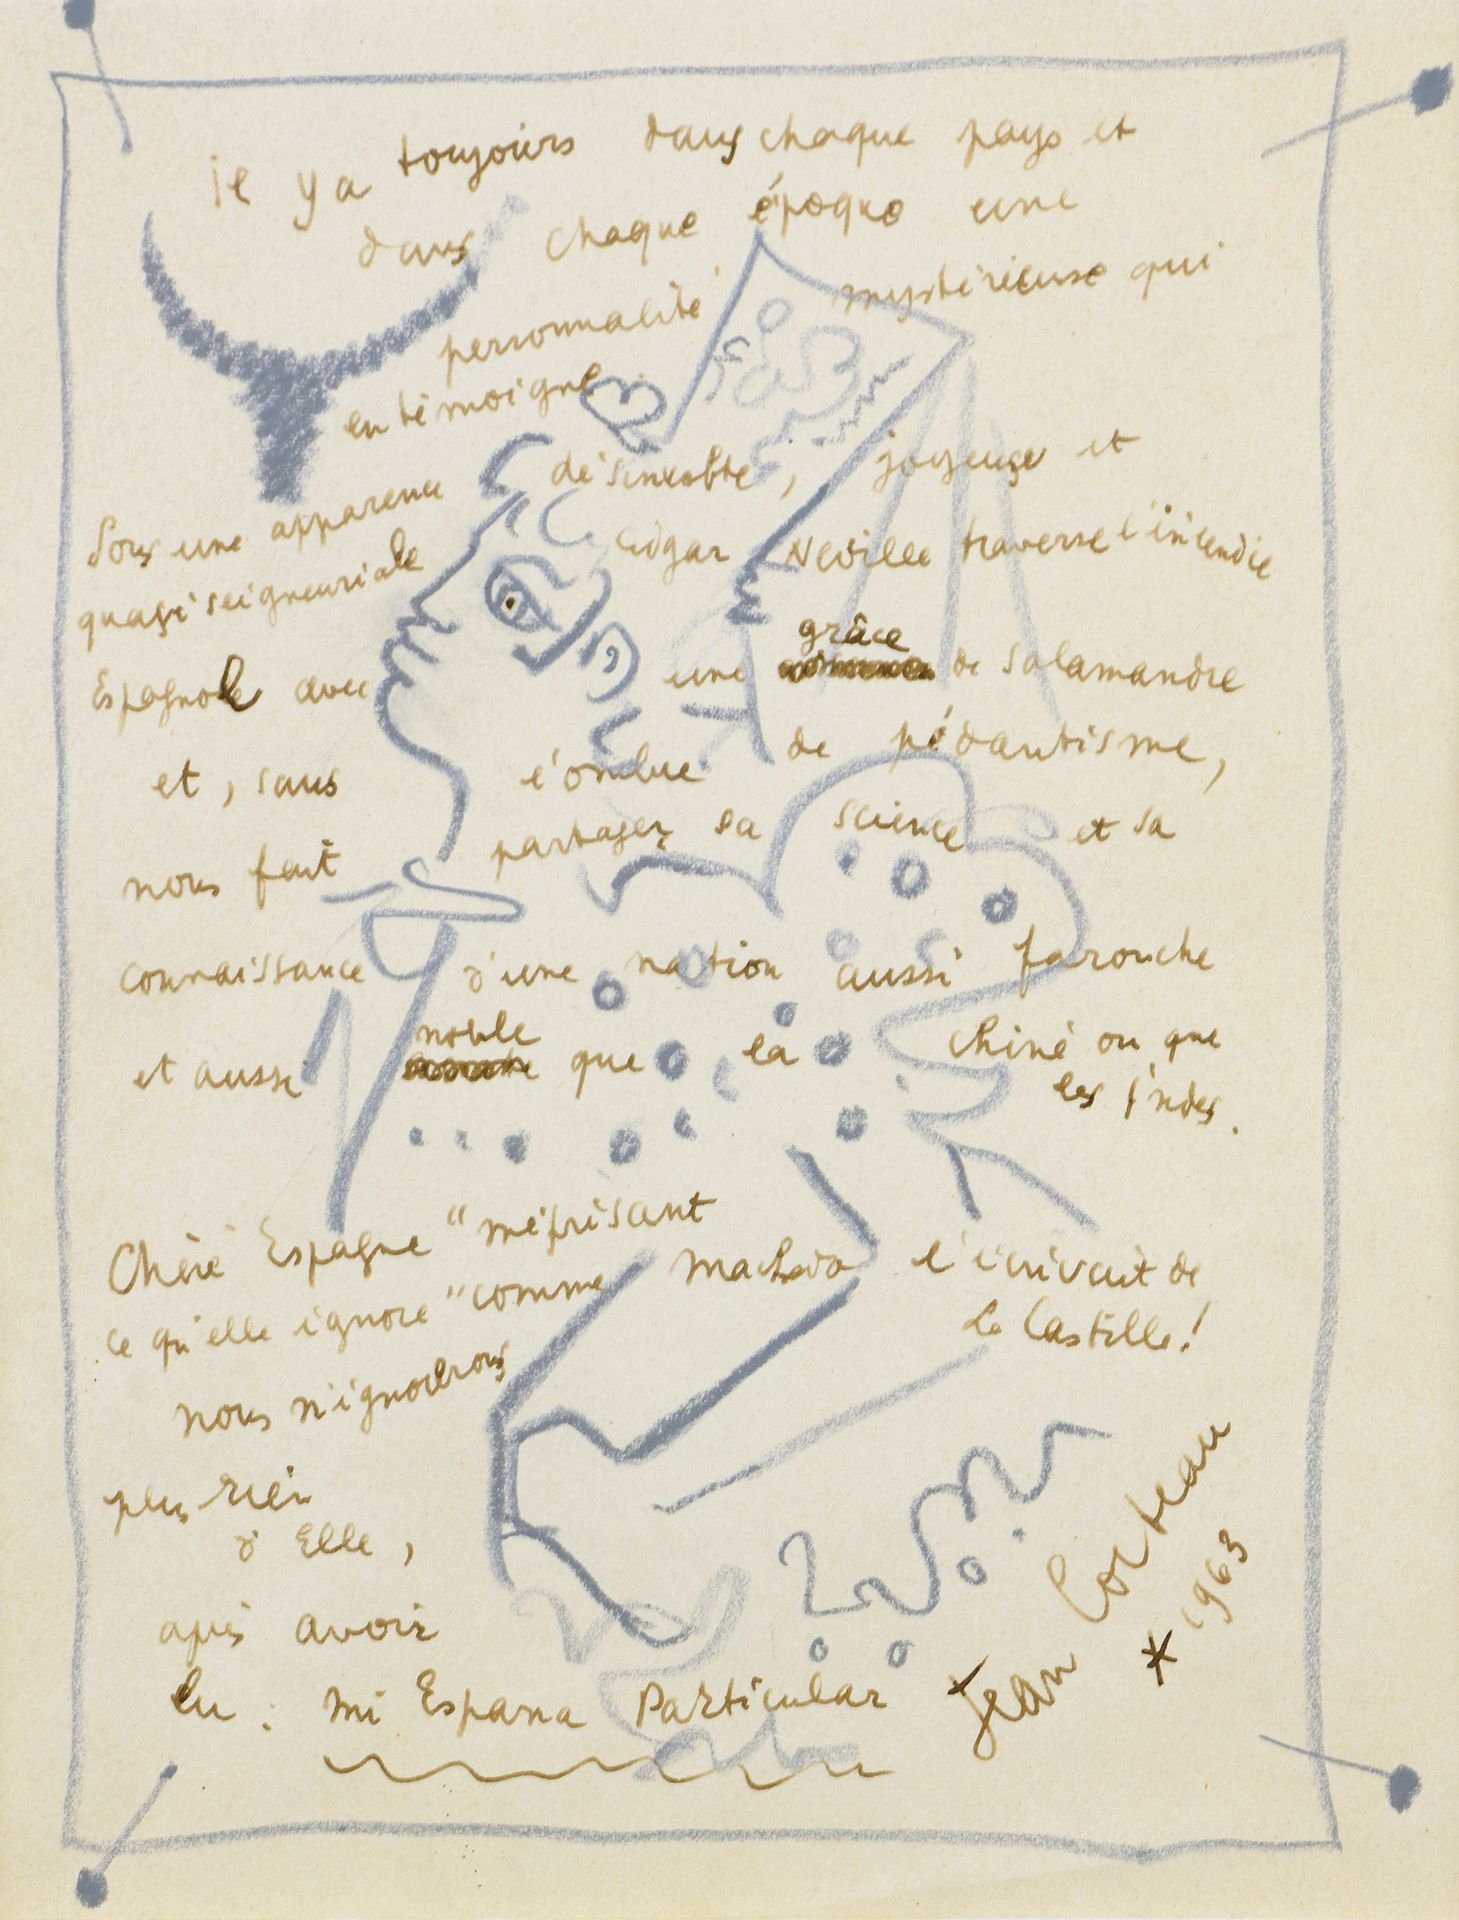 il y a toujours dans chaque pays et
dans chaque époque une
personnalité mystérieuse qui
en témoigne
Sous une apparence désinvolte, joyeuse et
quasi seigneuriale Edgar Neville traverse l'incendie
Espagnol avec une grâce de Salamandre
et, sans l'ombre de pédantisme,
nous fait partager sa science et sa
connaissance d'une nation aussi farouche
et aussi noble que la Chine ou que
les Indes.
Chère Espagne "méprisant
ce qu'elle ignore" comme Machado l'écrivait de
La Castille!
nous n'ignorerons
plus rien
d'Elle,
après avoir
lu : Mi Espana Particular
Jean Cocteau
* 1963